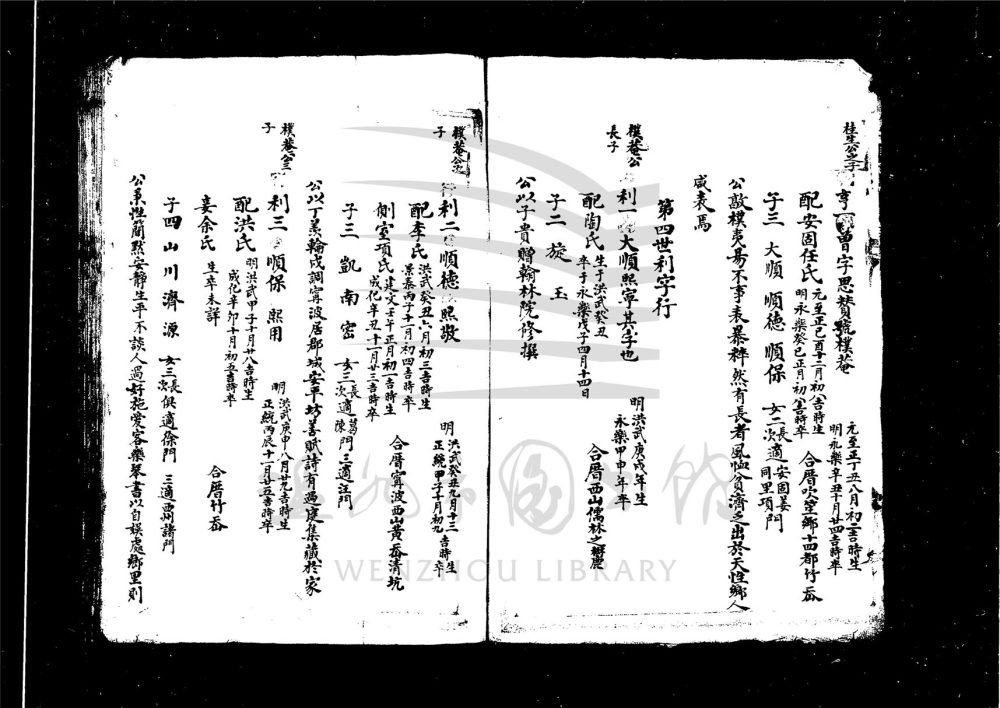 桂生公之子
亨一 曾字思贊號樸菴
元至正丁丑八月初二吉時生
明永樂辛丑十月廿四吉時卒
配安固任氏
元至正己酉十二月初八吉時生
明永樂癸巳正月初八吉時卒
合厝吹臺鄉十四都竹岙
子三 大順 順德 順保
女二 長適安固姜
次適同里項門
公敦樸夷易不事表暴粹然有長者風恤貧濟乏出於天性鄉人
咸表焉
第四世利字行
樸菴公長子
利一 大順熙寧其字也
明洪武庚戌年生
永樂甲申年卒
配陶氏
生于洪武癸丑
卒于永樂戊子四月十四日
合厝西山儒林之
子二 旋 玉
公以子貴贈翰林院修撰
樸菴公之子
利二 順德 熙敬
明洪武癸丑九月十三吉時生
正統甲子十月初九吉時卒
配李氏
洪武癸丑六月初三吉時生
景泰丙子十一月初四吉時卒
合厝寧波西山黃岙清坑
側室項氏
建文壬午正月初一吉時生
成化辛丑十一月廿三吉時卒
子三 凱 南 密
女三 長適葛門
次適陳門
三適汪門
公以丁差輪戍調寧波居郡城安平坊善賦詩有過庭集藏於家
樸菴公三子
利三 順保 熙用
明洪武庚申八月廿九吉時生
正統丙辰十一月廿五吉時卒
配洪氏
明洪武甲子十月廿八吉時生
成化辛卯十月初五吉時卒
妾余氏 生卒未詳
合厝竹岙
子四 山 川 濟 源
女三 長次俱適徐門 三適西州諸門
公柔性簡默安靜生平不談人過好施愛客樂琴書以自娛處鄉里則
WENZHOU LIBRARY